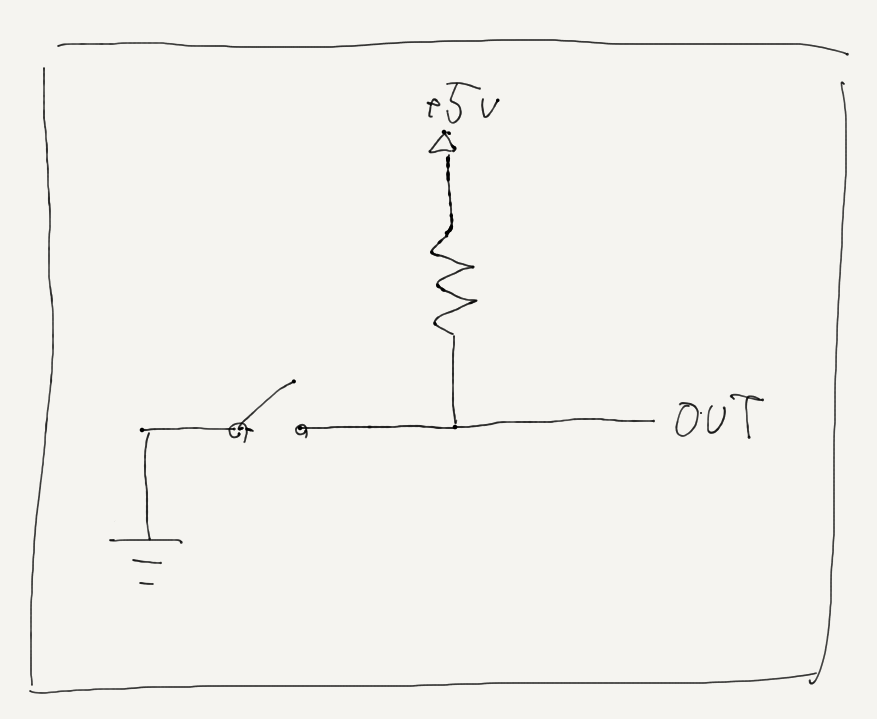 +5V
OUT